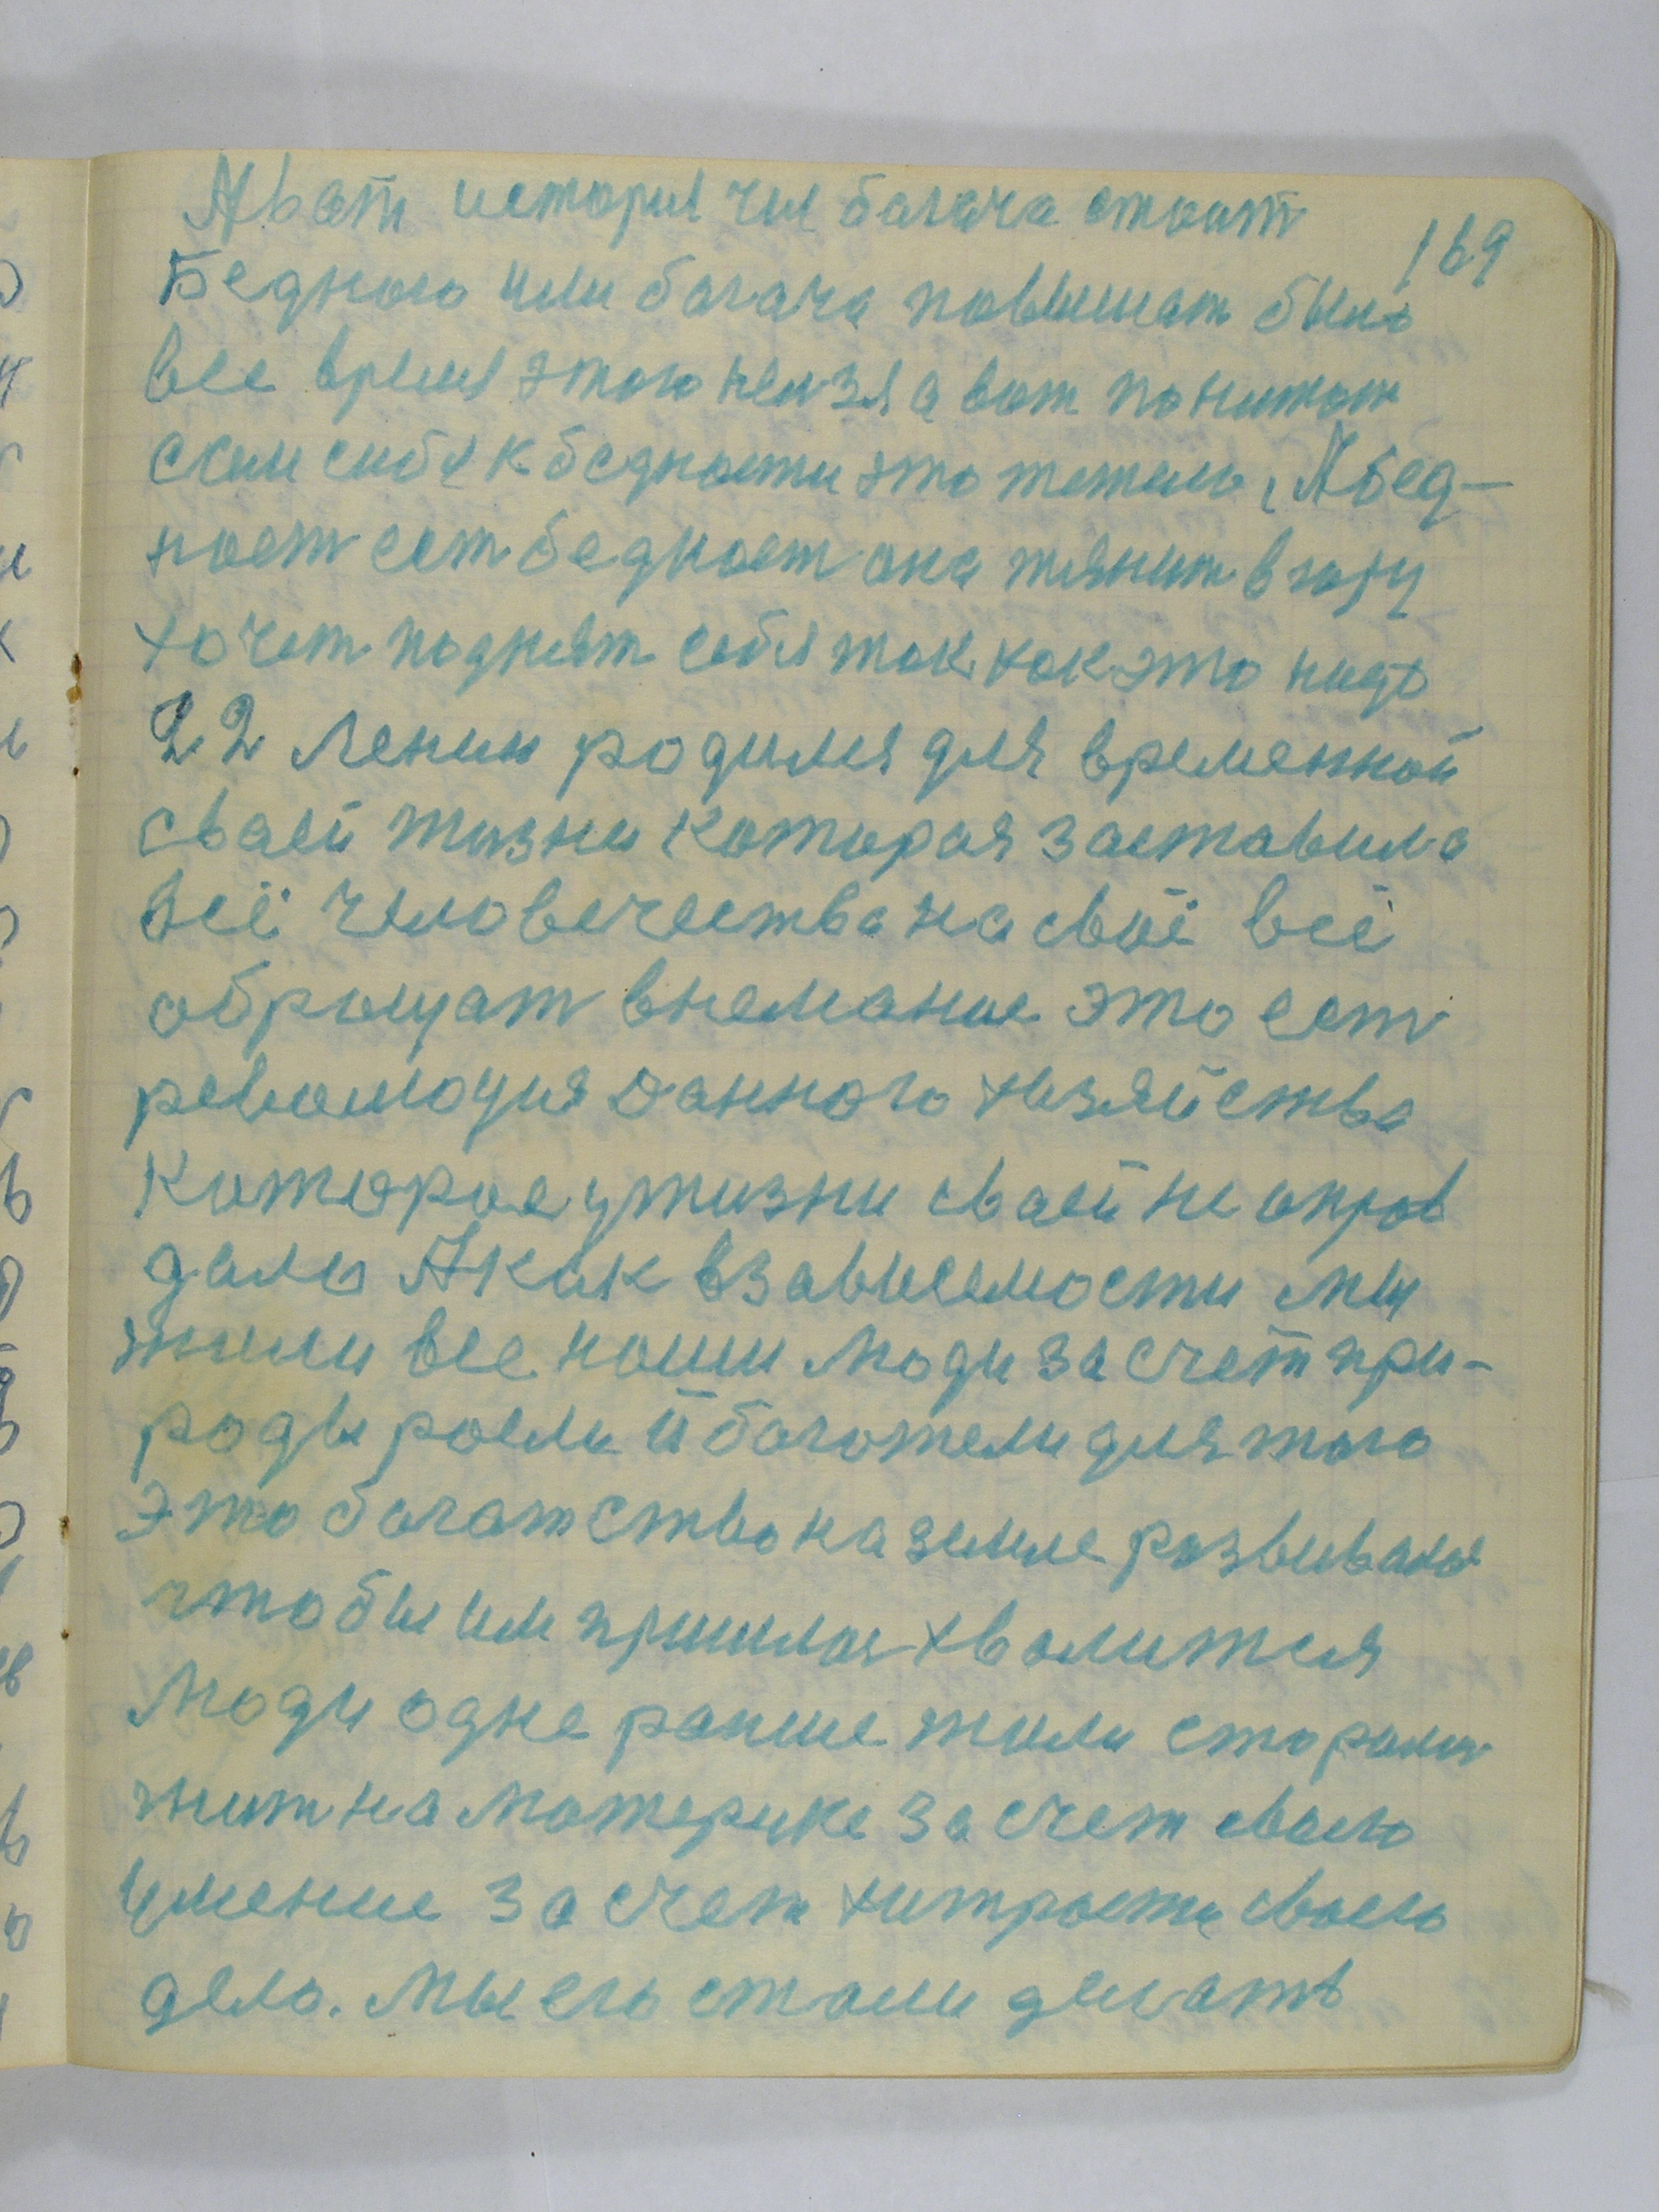 А вот история чья богача стоит
169
Бедного или богача повышат было
все время этого нельзя а вот понижат
сами себя к бедности это тежело, А бед-
ност ест бедност она тянит в гору
хочет поднят себя так как это надо
22 Ленин родился для временной
сваей жизни которая заставила
всё человечества на своё всё
обрыщат внемание это ест
революция данного хазяйства
которое у жизни сваей не оправ
дало А как в зависемости мы
жили все наши люди за счёт при-
роды росли й богатели для того
это богатство на земле развивали
чтобы им пришлося хвалится
Люди одне ранше жили старались
жит на материке за счет своего
имение за счет хитрости своего
дело. Мы его стали делать